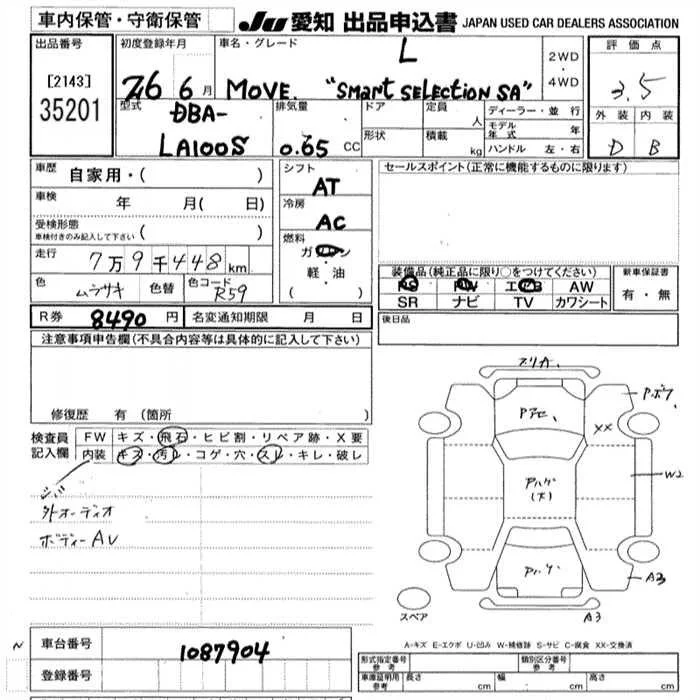 車内保管・守衛保管
JU 愛知 出品申込書 JAPAN USED CAR DEALERS ASSOCIATION
出品番号
[2143]
35201
初度登録年月
26 6 月
車名・グレード
L
MOVE. "Smart SELECTION SA"
2WD
・
4WD
評価点
3.5
外装 内装
D B
型式
DBA-
LA100S
排気量
0.65 CC
ドア
形状
定員 人
積載 kg
ディーラー・並行
モデル年式 年
ハンドル 左・右
車歴 自家用・( )
車検 年 月( 日)
受検形態
車検付きのみ記入して下さい ( )
走行 7万9千448km
色 ムラサキ 色替 色コード R59
シフト
AT
冷房
AC
燃料
ガソリン
・
軽・油
( )
セールスポイント(正常に機能するものに限ります)
装備品(純正品に限り○をつけてください)
PS PW エアB AW
SR ナビ TV カワシート
新車保証書
有・無
R券 8490 円 名変通知期限 月 日
後日品
注意事項申告欄(不具合内容等は具体的に記入して下さい)
修復歴 有 (箇所 )
検査員記入欄
FW キズ・飛石・ヒビ割・リペア跡・X要
内装 キズ・汚レ・コゲ・穴・スレ・キレ・破レ
外オーディオ
ボディーAU
Pボフ
XX
アハゲ
(大)
W2
アハゲ
A3
A3
スペア
A-キズ E-エクボ U-凹み W-補修跡 S-サビ C-腐食 XX-交換済
車台番号 1087904
登録番号
形式指定番号
参考
類別区分番号
参考
車庫証明用
参考
長さ cm 幅 cm 高さ cm